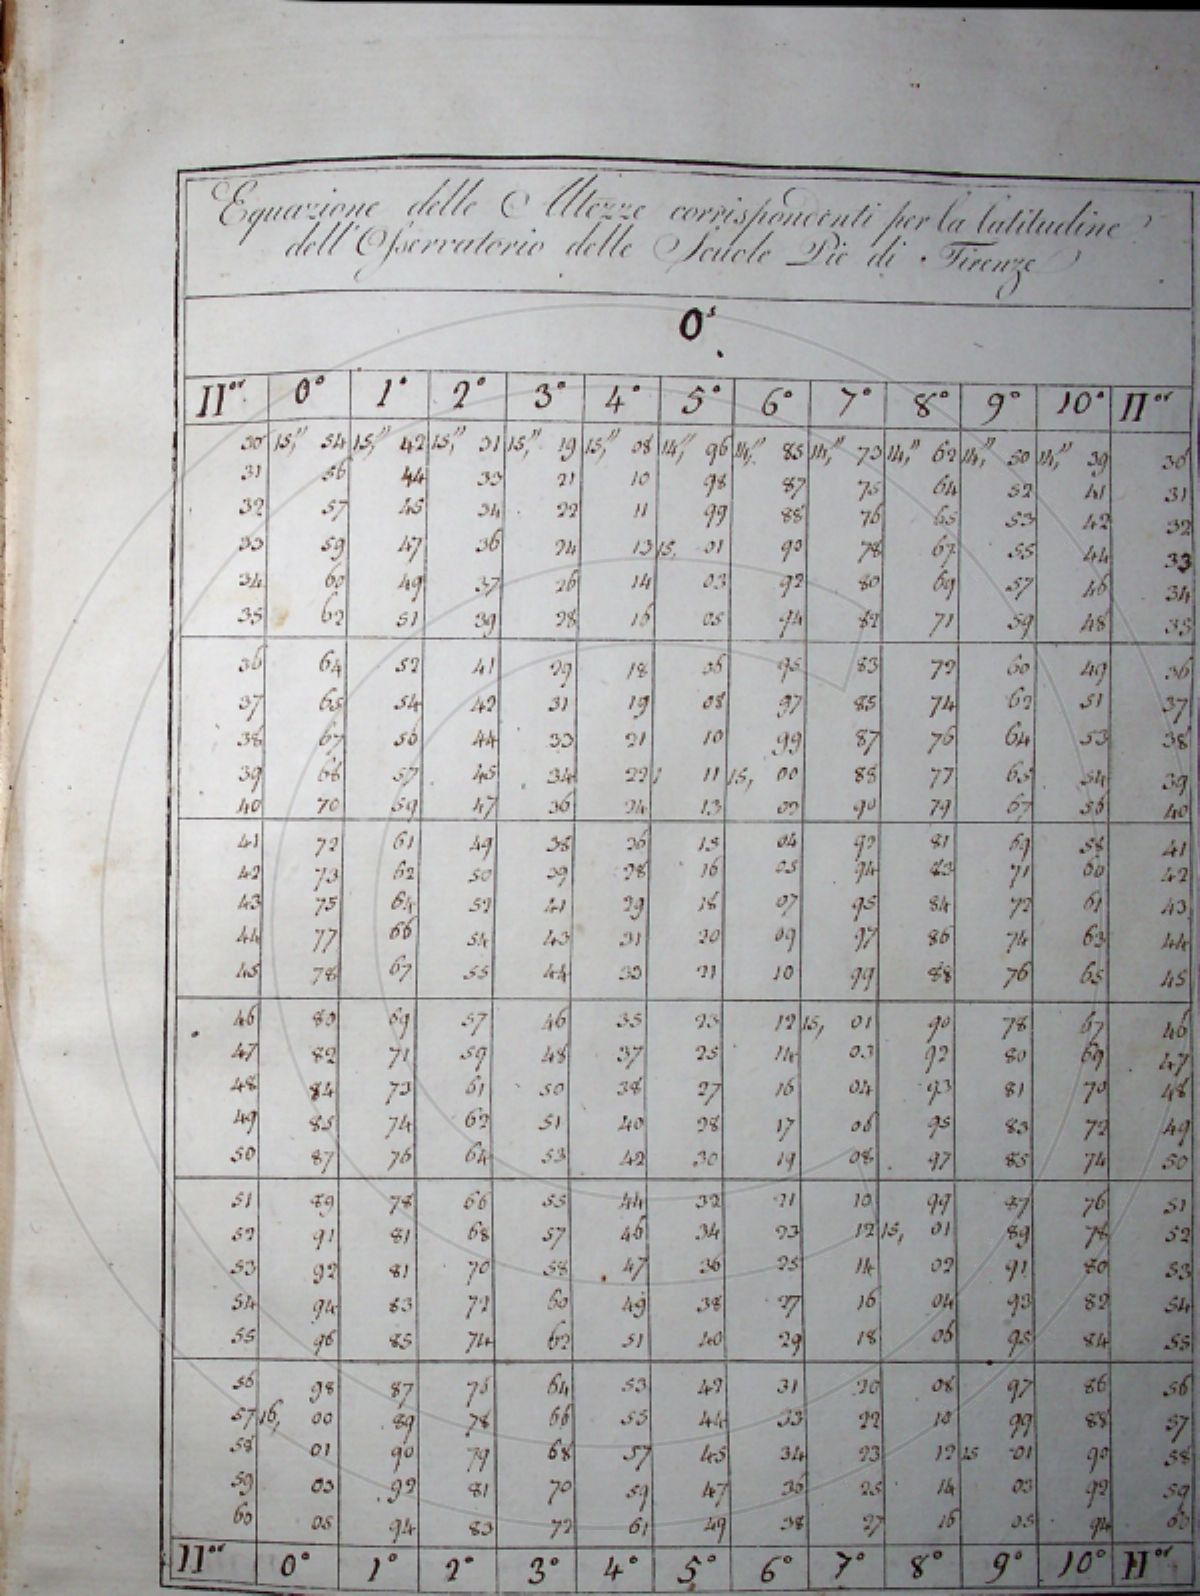 Equazione delle Altezze corrispondenti per la latitudine
dell'Osservatorio delle Scuole Pie di Firenze
0ˢ
IIᵒʳ 0° 1° 2° 3° 4° 5° 6° 7° 8° 9° 10° IIᵒʳ
30 15,″ 54 15,″ 42 15,″ 31 15,″ 19 15,″ 08 14,″ 96 14,″ 85 14,″ 73 14,″ 62 14,″ 50 14,″ 39 30
31 56 44 33 21 10 98 87 75 64 52 41 31
32 57 45 34 22 11 99 88 76 65 53 42 32
33 59 47 36 24 13 15, 01 90 78 67 55 44 33
34 60 49 37 26 14 03 92 80 69 57 46 34
35 62 51 39 28 16 05 94 82 71 59 48 35
36 64 52 41 29 18 06 95 83 72 60 49 36
37 65 54 42 31 19 08 97 85 74 62 51 37
38 67 56 44 33 21 10 99 87 76 64 53 38
39 68 57 45 34 22 11 15, 00 88 77 65 54 39
40 70 59 47 36 24 13 02 90 79 67 56 40
41 72 61 49 38 26 15 04 92 81 69 58 41
42 73 62 50 39 28 16 05 94 83 71 60 42
43 75 64 52 41 29 18 07 95 84 72 61 43
44 77 66 54 43 31 20 09 97 86 74 63 44
45 78 67 55 44 33 21 10 99 88 76 65 45
46 80 69 57 46 35 23 12 15, 01 90 78 67 46
47 82 71 59 48 37 25 14 03 92 80 69 47
48 84 73 61 50 38 27 16 04 93 81 70 48
49 85 74 62 51 40 28 17 06 95 83 72 49
50 87 76 64 53 42 30 19 08 97 85 74 50
51 89 78 66 55 44 32 21 10 99 87 76 51
52 91 81 68 57 46 34 23 12 15, 01 89 78 52
53 92 81 70 58 47 36 25 14 02 91 80 53
54 94 83 72 60 49 38 27 16 04 93 82 54
55 96 85 74 62 51 40 29 18 06 95 84 55
56 98 87 76 64 53 42 31 20 08 97 86 56
57 16, 00 89 78 66 55 44 33 22 10 99 88 57
58 01 90 79 68 57 45 34 23 12 15 01 90 58
59 03 92 81 70 59 47 36 25 14 03 92 59
60 05 94 83 72 61 49 38 27 16 05 94 60
IIᵒʳ 0° 1° 2° 3° 4° 5° 6° 7° 8° 9° 10° IIᵒʳ